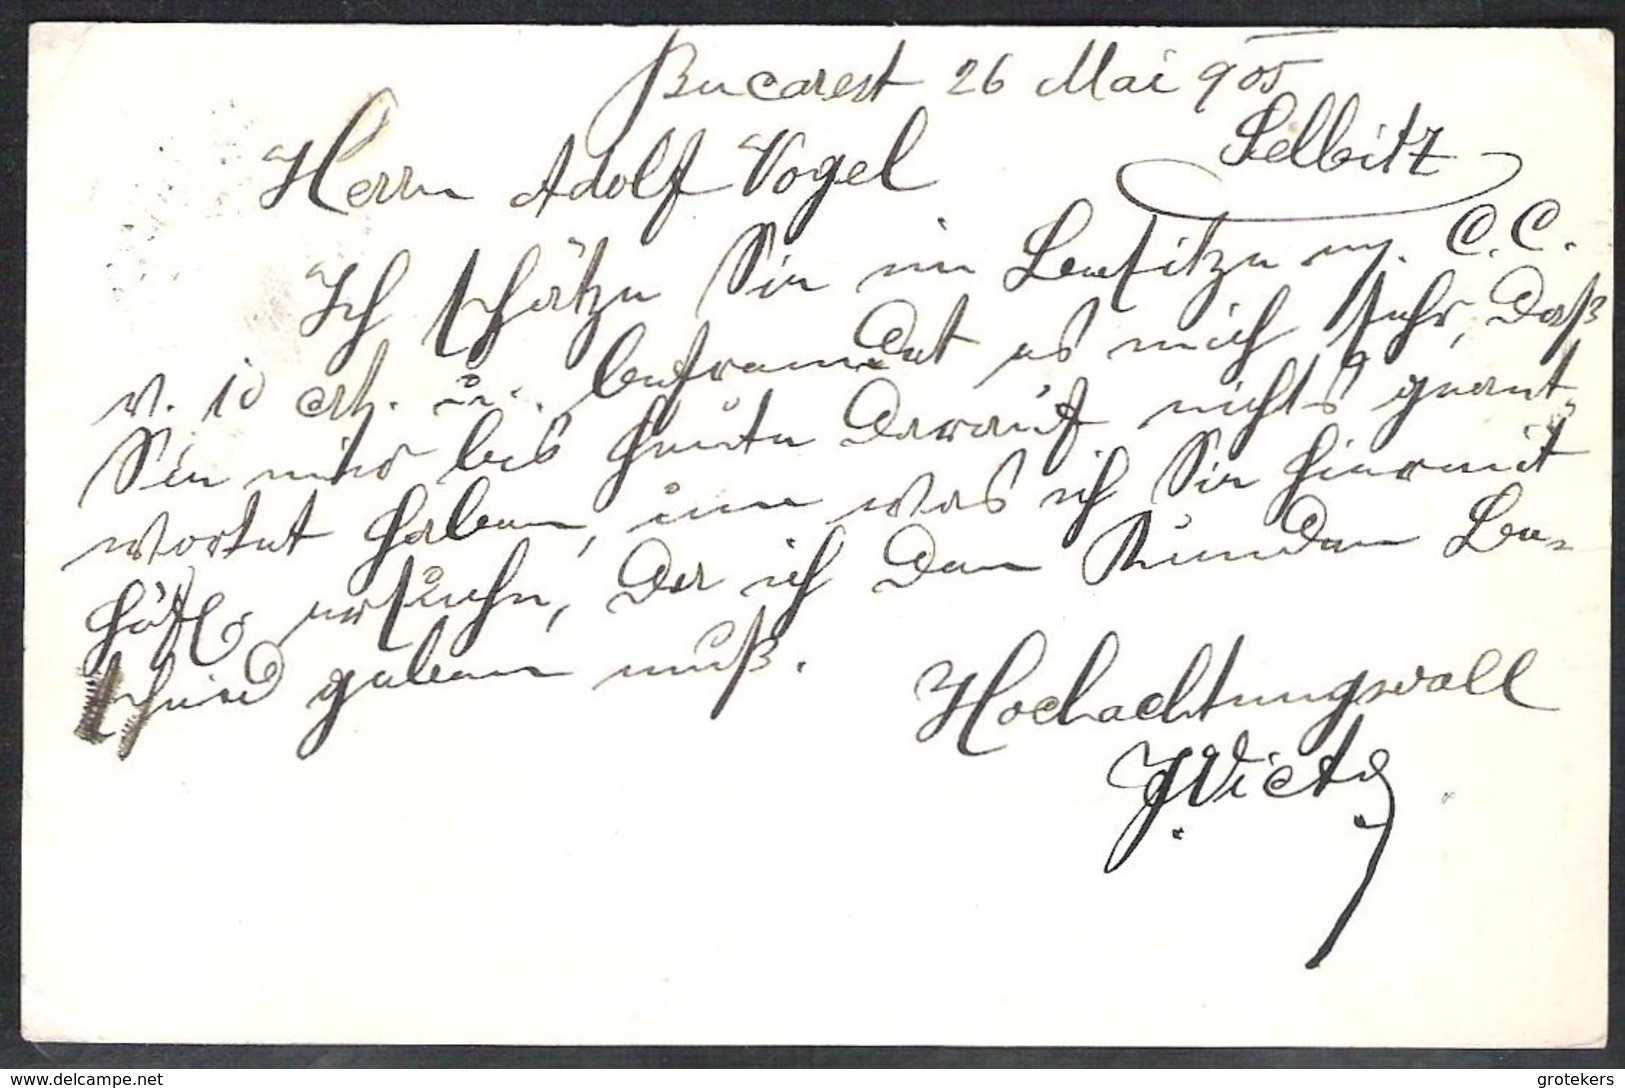 Bucarest 26 Mai 905
Herrn Adolf Vogel Selbitz
Ich schätze Sie im Besitze m. C.C.
v. 10 crt. u. befremdet es mich sehr, daß
Sie mir bis heute darauf nichts geant-
wortet haben, um was ich Sie hiermit
höfl. ersuche, da ich den Kunden Be-
scheid geben muß.
Hochachtungsvoll
www.delcampe.net
grotekers